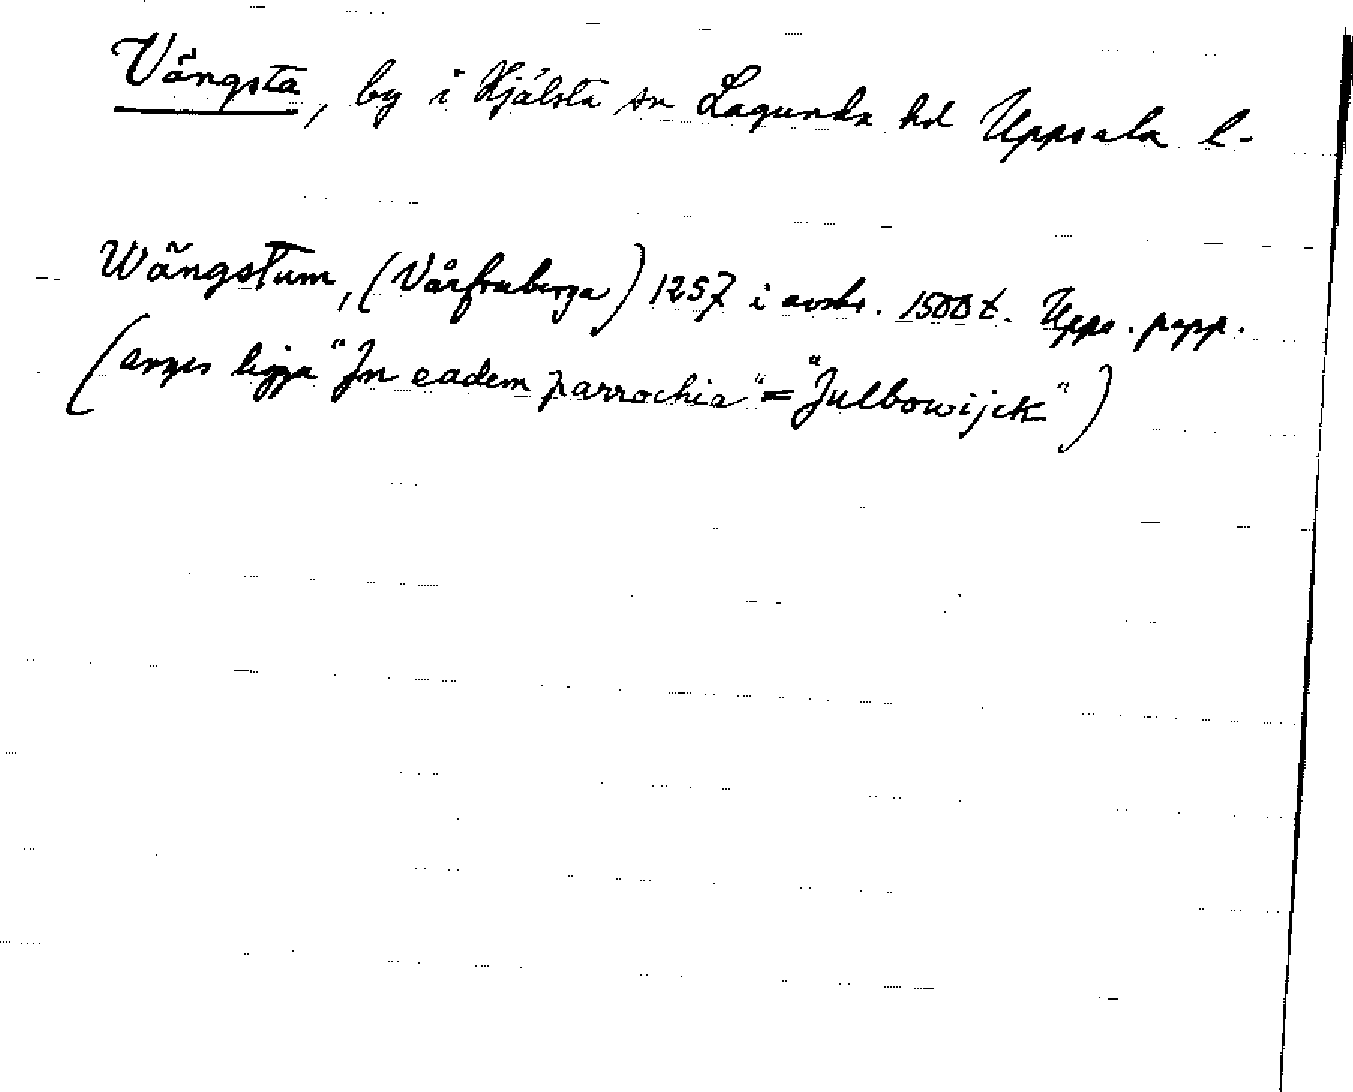 Vängsta, by i Hjälsta sn Lagunda hd Uppsala l.
Wängstum, (Vårfruberga) 1257 i avskr. 1500 t. Upps. papp.
(anges ligga "Jn eadem parrochia" = "Julbowijck")